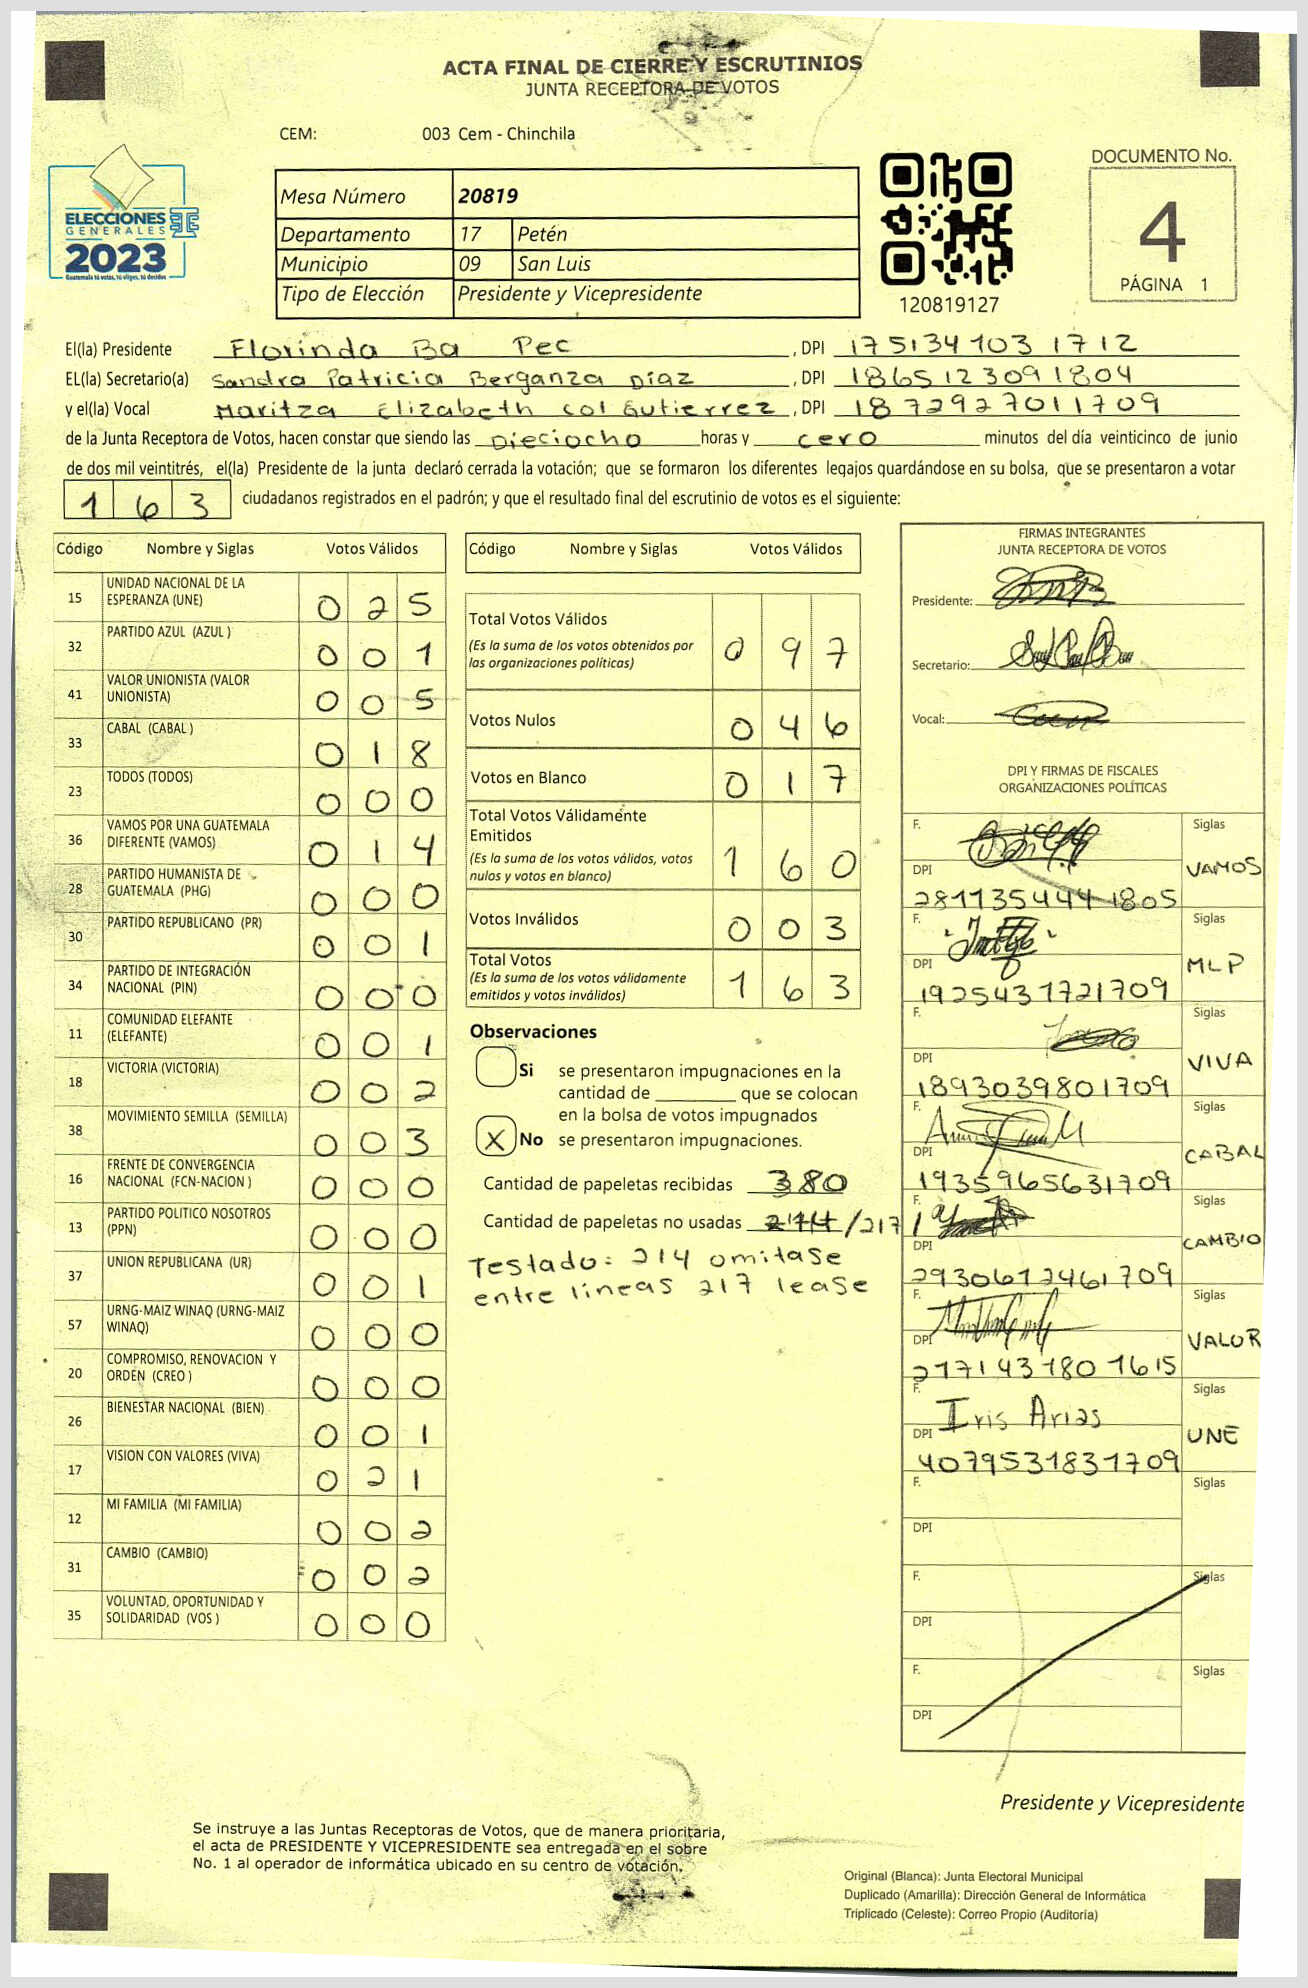 ACTA FINAL DE CIERRE Y ESCRUTINIOS
JUNTA RECEPTORA DE VOTOS
CEM: 003 Cem - Chinchila
ELECCIONES
GENERALES
2023
Guatemala tú votas, tú eliges, tú decides
Mesa Número 20819
Departamento 17 Petén
Municipio 09 San Luis
Tipo de Elección Presidente y Vicepresidente
120819127
DOCUMENTO No.
4
PÁGINA 1
El(la) Presidente Florinda Ba Pec , DPI 1751341031712
EL(la) Secretario(a) Sandra Patricia Berganza Díaz , DPI 1865123091804
y el(la) Vocal Maritza Elizabeth Col Gutierrez , DPI 1872927011709
de la Junta Receptora de Votos, hacen constar que siendo las Dieciocho horas y cero minutos del día veinticinco de junio
de dos mil veintitrés, el(la) Presidente de la junta declaró cerrada la votación; que se formaron los diferentes legajos quardándose en su bolsa, que se presentaron a votar
163 ciudadanos registrados en el padrón; y que el resultado final del escrutinio de votos es el siguiente:
Código Nombre y Siglas Votos Válidos
15 UNIDAD NACIONAL DE LA ESPERANZA (UNE) 025
32 PARTIDO AZUL (AZUL ) 001
41 VALOR UNIONISTA (VALOR UNIONISTA) 005
33 CABAL (CABAL ) 018
23 TODOS (TODOS) 000
36 VAMOS POR UNA GUATEMALA DIFERENTE (VAMOS) 014
28 PARTIDO HUMANISTA DE GUATEMALA (PHG) 000
30 PARTIDO REPUBLICANO (PR) 001
34 PARTIDO DE INTEGRACIÓN NACIONAL (PIN) 000
11 COMUNIDAD ELEFANTE (ELEFANTE) 001
18 VICTORIA (VICTORIA) 002
38 MOVIMIENTO SEMILLA (SEMILLA) 003
16 FRENTE DE CONVERGENCIA NACIONAL (FCN-NACION ) 000
13 PARTIDO POLITICO NOSOTROS (PPN) 000
37 UNION REPUBLICANA (UR) 001
57 URNG-MAIZ WINAQ (URNG-MAIZ WINAQ) 000
20 COMPROMISO, RENOVACION Y ORDEN (CREO ) 000
26 BIENESTAR NACIONAL (BIEN) 001
17 VISION CON VALORES (VIVA) 021
12 MI FAMILIA (MI FAMILIA) 002
31 CAMBIO (CAMBIO) 002
35 VOLUNTAD, OPORTUNIDAD Y SOLIDARIDAD (VOS ) 000
Código Nombre y Siglas Votos Válidos
Total Votos Válidos 097
(Es la suma de los votos obtenidos por
las organizaciones políticas)
Votos Nulos 046
Votos en Blanco 017
Total Votos Válidamente
Emitidos 160
(Es la suma de los votos válidos, votos
nulos y votos en blanco)
Votos Inválidos 003
Total Votos 163
(Es la suma de los votos válidamente
emitidos y votos inválidos)
Observaciones
Si se presentaron impugnaciones en la
cantidad de ________ que se colocan
en la bolsa de votos impugnados
X No se presentaron impugnaciones.
Cantidad de papeletas recibidas 380
Cantidad de papeletas no usadas 214 /217/
Testado: 214 omitase
entre lineas 217 lease
FIRMAS INTEGRANTES
JUNTA RECEPTORA DE VOTOS
Presidente:
Secretario:
Vocal:
DPI Y FIRMAS DE FISCALES
ORGANIZACIONES POLÍTICAS
F. Siglas
DPI VAMOS
2811354441805
F. Siglas
DPI MLP
1925431721709
F. Siglas
DPI VIVA
1893039801709
F. Siglas
DPI CABAL
1935965631709
F. Siglas
DPI CAMBIO
2930612461709
F. Siglas
DPI VALOR
2171431801615
F. Iris Arias Siglas
DPI UNE
4079531831709
F. Siglas
DPI
F. Siglas
DPI
F. Siglas
DPI
Presidente y Vicepresidente
Se instruye a las Juntas Receptoras de Votos, que de manera prioritaria,
el acta de PRESIDENTE Y VICEPRESIDENTE sea entregada en el sobre
No. 1 al operador de informática ubicado en su centro de votación.
Original (Blanca): Junta Electoral Municipal
Duplicado (Amarilla): Dirección General de Informática
Triplicado (Celeste): Correo Propio (Auditoría)